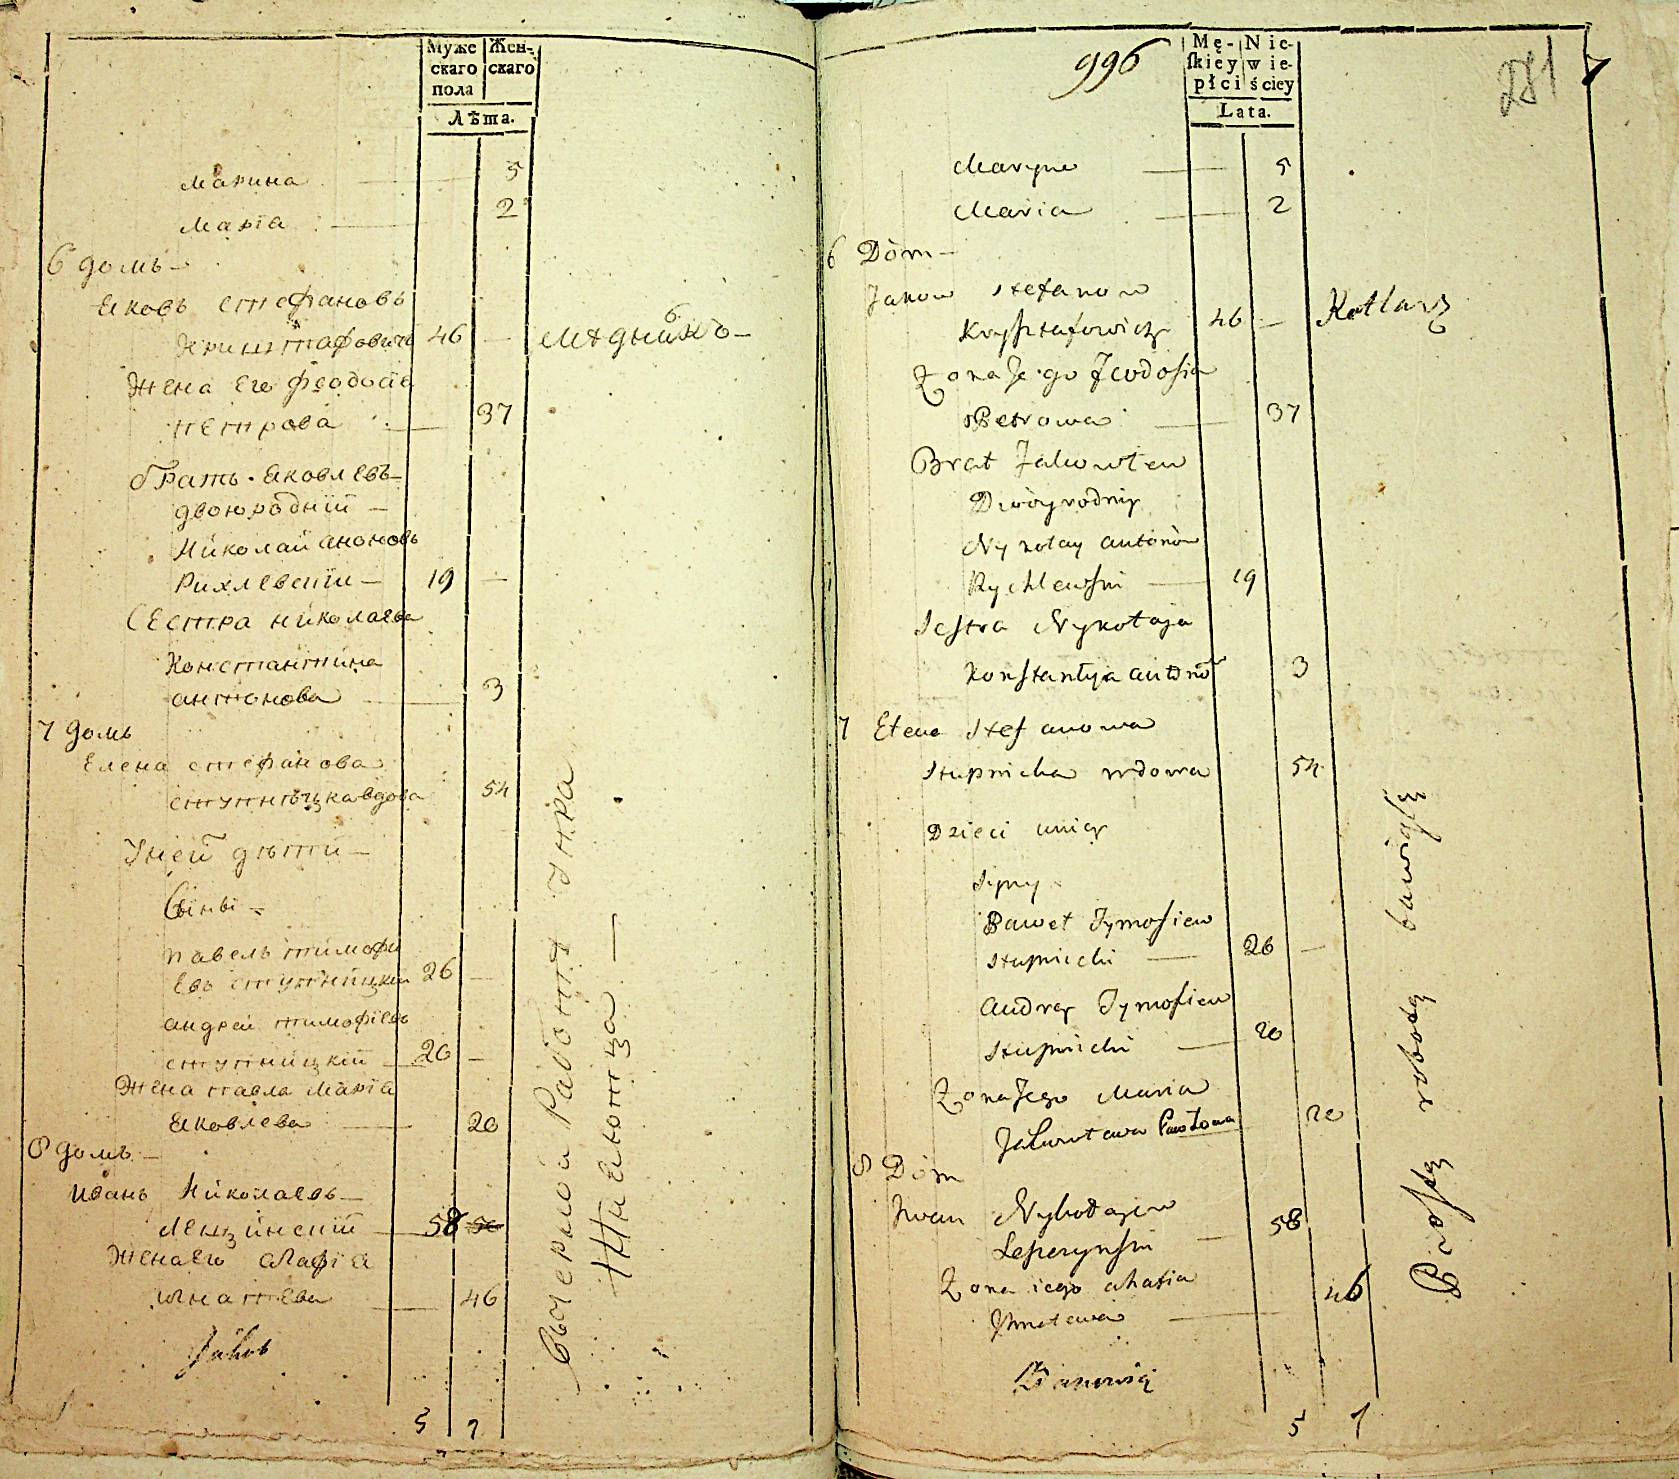 Муже Жен-
скаго скаго
пола
Лѣта.
Марина 5
Мариа 2
6 домъ
Яковъ Стефановъ
Криштафовичъ 46 — Мѣдникъ —
Жена Его Феодосія
Петрова 37
братъ Яковлевъ
двоюродній —
Николай Аноновъ
Рихлевскій — 19 —
Сестра Николаева
Константина
антонова 3
7 домъ
Елена Стефанова
ступнѣцка вдова 54
Уней дѣти —
Сыны —
павелъ тимофи
евъ ступніцкій 26 —
андрей тимофіевъ
ступніцкій 20 —
Жена павла Маріа
Яковлева 20
8 домъ —
Иванъ Николаевъ —
Лещинскій 58
Жена его Агафіа
Игнатева 46
5 7
работи
996
281
Mę- Nie-
ſkiey wie-
płci ściey
Lata.
Maryna 5
Maria 2
6 Dóm —
Jakow Stefanow
Krysztafowicz 46 — Kotlarz
Żona Jego Feodosia
Petrowa 37
Brat Jakowlew
Dwóyrodny
Nykołay Antonów
Rychlewski 19
Sestra Nykołaja
Konstantyja Antonō 3
7 Elena Stefanowa
Stupnicka wdowa 54
Dzieci uniey
Syny
Paweł Tymofiew
Stupnicki 26 —
Andrey Tymofiew
Stupnicki 20
Żona Jego Maria
Jakowlewa Pawłowa 20
8 Dóm
Iwan Nykołajew
Leszczynski 58
Żona iego Ahafia
Ihnatewa 46
5 7
Prostą robotą bawiąsię